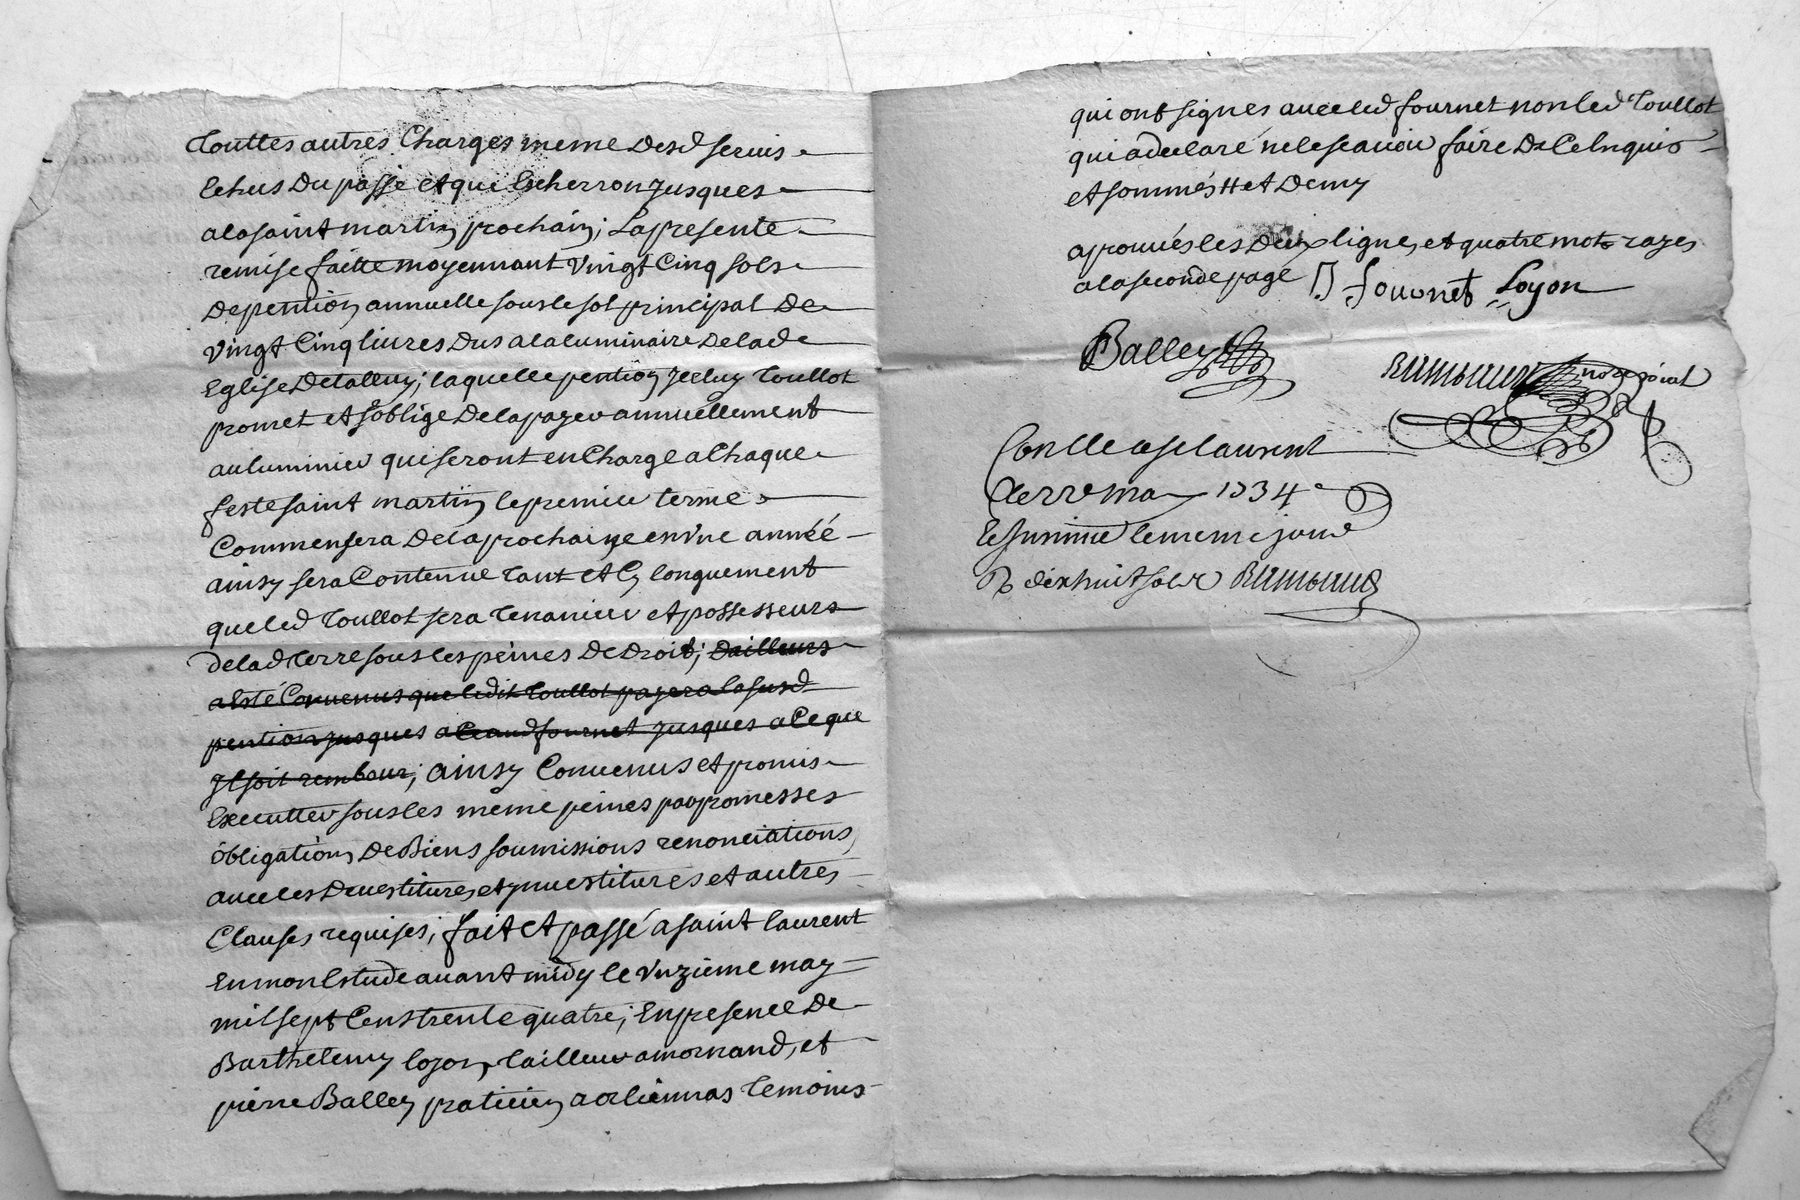 touttes autres Charges meme desd servis
Echus du passé et qui Echerron jusques
a la saint martin prochain; La presente
remise faitte moyennant vingt Cinq sols
de pention annuelle sous le sol principal de
vingt Cinq livres dus a la luminaire de lad
Eglise de talluy; laquelle pention jceluy toullot
promet et soblige de la payer annuellement
au luminier qui seront en Charge a Chaque
feste saint martin le premier terme
Commensera de la prochaine en vne année
ainsy sera Contenue tant et sy longuement
que led toullot sera tenancier et possesseurs
de lad terre sous les peines de droit; dailleurs
a Esté Convenus que ledit toullot payera la susd
pention jusques jusques a Ce que
jl soit rembour; ainsy Convenus et promis
Executter sous les meme peines par promesses
obligation de Biens soumissions renonciations,
avec les devestitures et jnvestitures et autres
Clauses requises; fait et passé a saint laurent
En mon Estude avant midy le vnzieme may
mil sept Cens trente quatre; En presence de
Barthelemy loyon tailleur a mornand, et
pierre Balley praticien a orliennas temoins
qui ont signés avec led fournet non led toullot
qui a declaré ne le scavoir faire de Ce Enquis
et sommés et demy
aprouvés les deux lignes et quatre mots rayes
a la seconde page J fournet Loyon
Balley
not royal
Conllé a st laurent
le may 1734
le meme jour
R dix huit sols